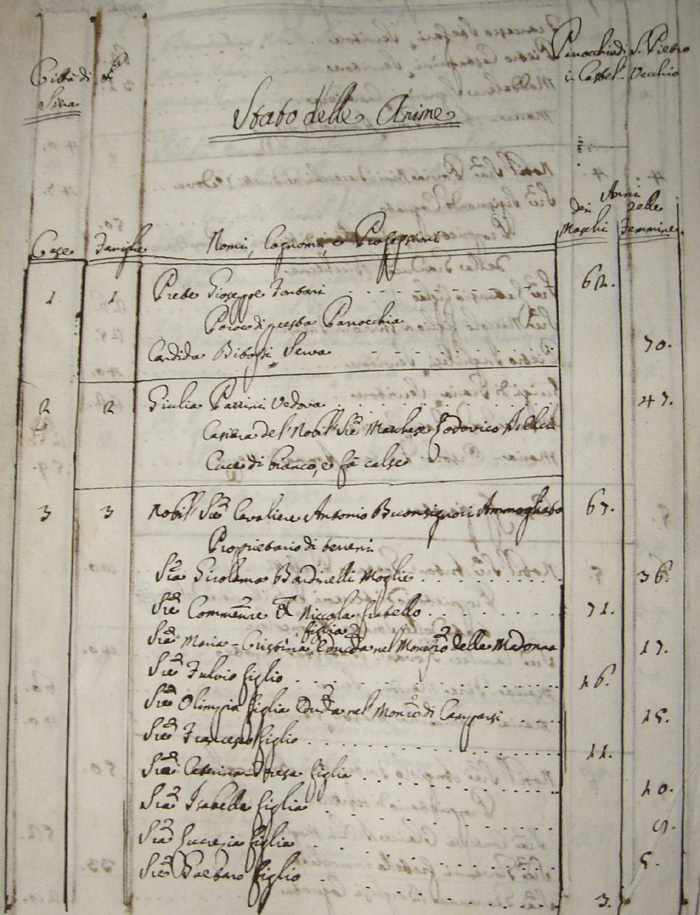 Città di
Siena
Parrochia di S. Pietro
in Castel Vecchio
Stato delle Anime
Anni
dei
Maschi
delle
Femmine
Case
Famiglie
Nomi, Cognomi, e Professioni
1 1 Prete Giuseppe 62.
Paroco di questa Parrochia
Candida Serva 70.
2 2 Giulia Parrini Vedova 47.
del Nobil Sig.e Marchese Lodovico
Cuce di bianco, e fà calze
3 3 Nobil Sig.e Cavaliere Antonio Buonsignori Ammogliato 67.
Proprietario di terreni
Sig.a Girolama Bardinelli Moglie 36.
Sig.e Niccola fratello 71.
figlia
Sig.a Maria Cristina nel della Madonna 17.
Sig.e Fulvio figlio 16.
Sig.a Olimpia figlia nel di Campansi 15.
Sig.e Francesco figlio 11.
Sig.a Caterina figlia 10.
Sig.a Isabella figlia 9.
Sig.a Lucrezia figlia 5.
Sig.e Barbaro figlio 3.